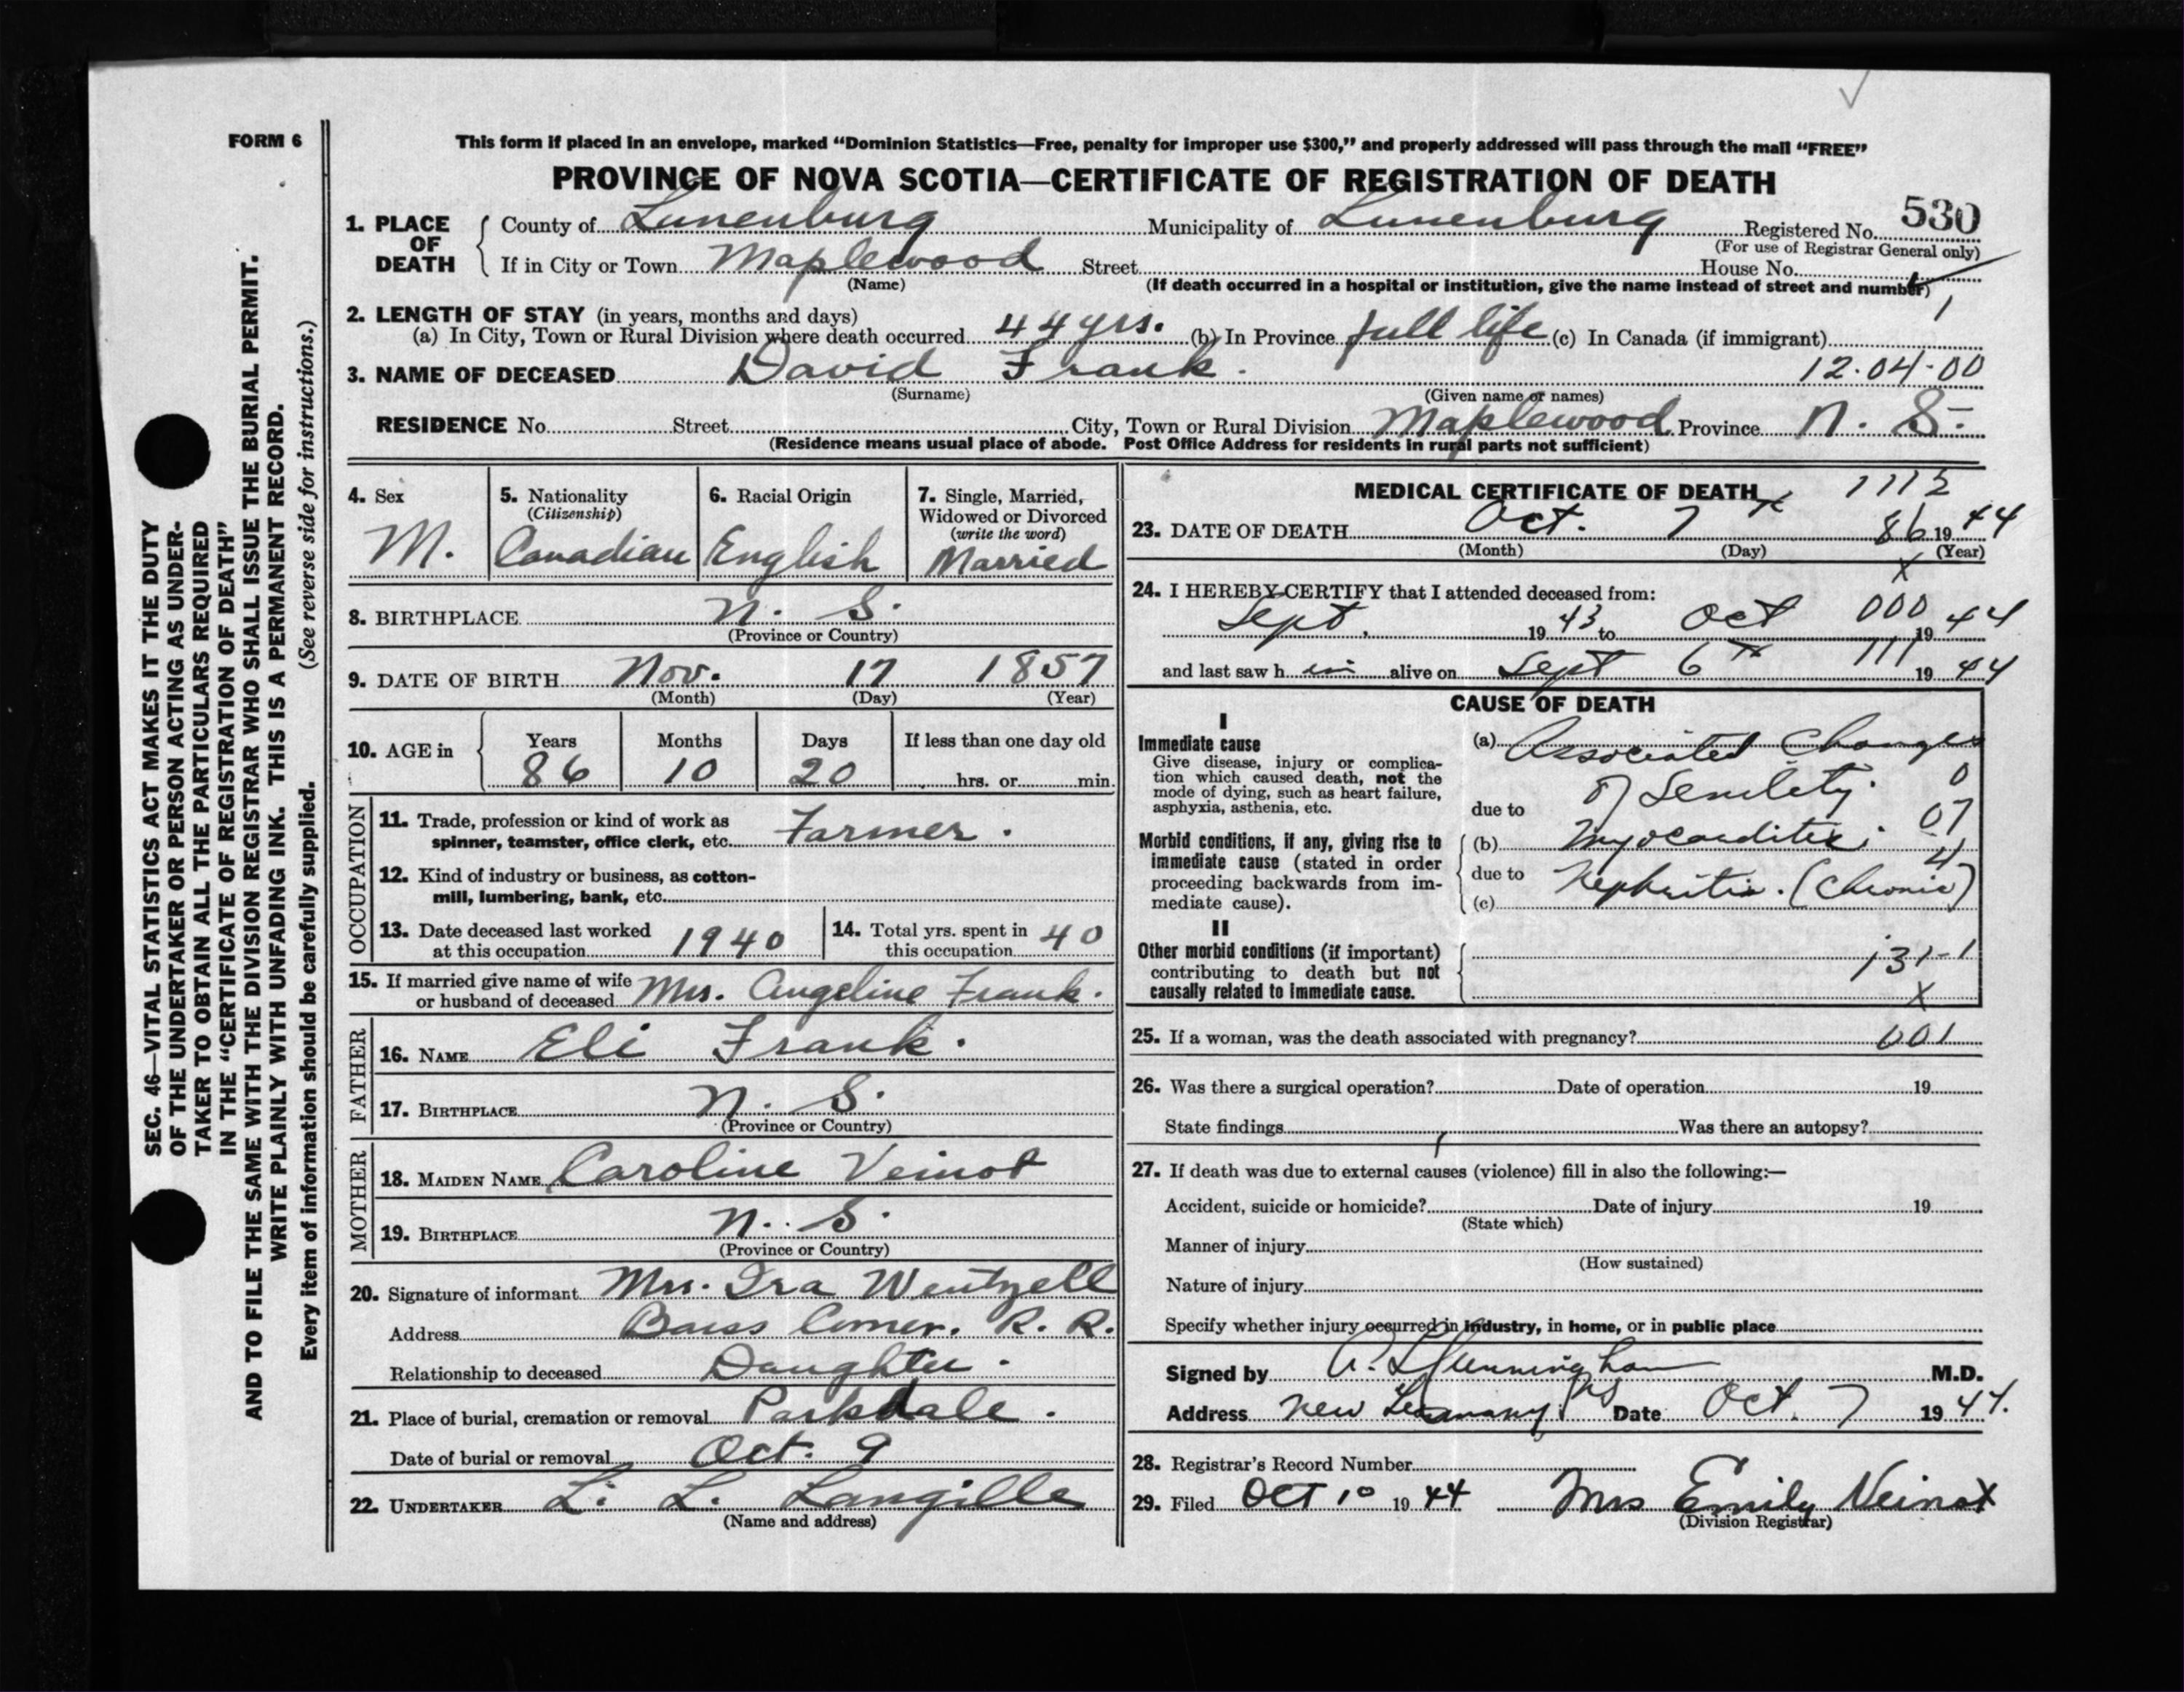 FORM 6
This form if placed in an envelope, marked "Dominion Statistics—Free, penalty for improper use $300," and properly addressed will pass through the mail "FREE"
PROVINCE OF NOVA SCOTIA—CERTIFICATE OF REGISTRATION OF DEATH
1. PLACE OF DEATH
County of Lunenburg Municipality of Lunenburg Registered No. 530
(For use of Registrar General only)
If in City or Town Maplewood Street House No.
(Name) (If death occurred in a hospital or institution, give the name instead of street and number)
1
2. LENGTH OF STAY (in years, months and days)
(a) In City, Town or Rural Division where death occurred 44 yrs. (b) In Province full life (c) In Canada (if immigrant)
3. NAME OF DECEASED David Frank. 12.04-00
(Surname) (Given name or names)
RESIDENCE No. Street City, Town or Rural Division Maplewood Province N. S.
(Residence means usual place of abode. Post Office Address for residents in rural parts not sufficient)
SEC. 46—VITAL STATISTICS ACT MAKES IT THE DUTY
OF THE UNDERTAKER OR PERSON ACTING AS UNDER-
TAKER TO OBTAIN ALL THE PARTICULARS REQUIRED
IN THE "CERTIFICATE OF REGISTRATION OF DEATH"
AND TO FILE THE SAME WITH THE DIVISION REGISTRAR WHO SHALL ISSUE THE BURIAL PERMIT.
WRITE PLAINLY WITH UNFADING INK. THIS IS A PERMANENT RECORD.
Every item of information should be carefully supplied. (See reverse side for instructions.)
4. Sex M.
5. Nationality (Citizenship) Canadian
6. Racial Origin English
7. Single, Married, Widowed or Divorced (write the word) Married
8. BIRTHPLACE N. S.
(Province or Country)
9. DATE OF BIRTH Nov. 17 1857
(Month) (Day) (Year)
10. AGE in Years 86 Months 10 Days 20 If less than one day old hrs. or min.
OCCUPATION
11. Trade, profession or kind of work as
spinner, teamster, office clerk, etc. Farmer.
12. Kind of industry or business, as cotton-
mill, lumbering, bank, etc.
13. Date deceased last worked
at this occupation 1940
14. Total yrs. spent in
this occupation 40
15. If married give name of wife
or husband of deceased Mrs. Angeline Frank.
FATHER
16. NAME Eli Frank.
17. BIRTHPLACE N. S.
(Province or Country)
MOTHER
18. MAIDEN NAME Caroline Veinot
19. BIRTHPLACE N. S.
(Province or Country)
20. Signature of informant Mrs. Ira Wentzell
Address Barss Corner. R. R.
Relationship to deceased Daughter.
21. Place of burial, cremation or removal Parkdale.
Date of burial or removal Oct. 9
22. UNDERTAKER L. L. Langille
(Name and address)
MEDICAL CERTIFICATE OF DEATH 1112
23. DATE OF DEATH Oct. 7 86 1944
(Month) (Day) (Year)
X
24. I HEREBY CERTIFY that I attended deceased from:
Sept. 1943 to Oct 000 1944
and last saw h im alive on Sept 6th 111 1944
CAUSE OF DEATH
I
Immediate cause
Give disease, injury or complica-
tion which caused death, not the
mode of dying, such as heart failure,
asphyxia, asthenia, etc.
(a) Associated Changes
of Senility. 0
due to 07
Morbid conditions, if any, giving rise to
immediate cause (stated in order
proceeding backwards from im-
mediate cause).
(b) Myocarditis; 4
due to Nephritis. (Chronic)
(c)
II
Other morbid conditions (if important)
contributing to death but not
causally related to immediate cause.
131-1
X
25. If a woman, was the death associated with pregnancy? 001
26. Was there a surgical operation? Date of operation 19
State findings Was there an autopsy?
27. If death was due to external causes (violence) fill in also the following:—
Accident, suicide or homicide? Date of injury 19
(State which)
Manner of injury
(How sustained)
Nature of injury
Specify whether injury occurred in industry, in home, or in public place
Signed by M.D.
Address New Germany NS Date Oct. 7 1944.
28. Registrar's Record Number
29. Filed Oct 10 1944 Mrs Emily Veinot
(Division Registrar)